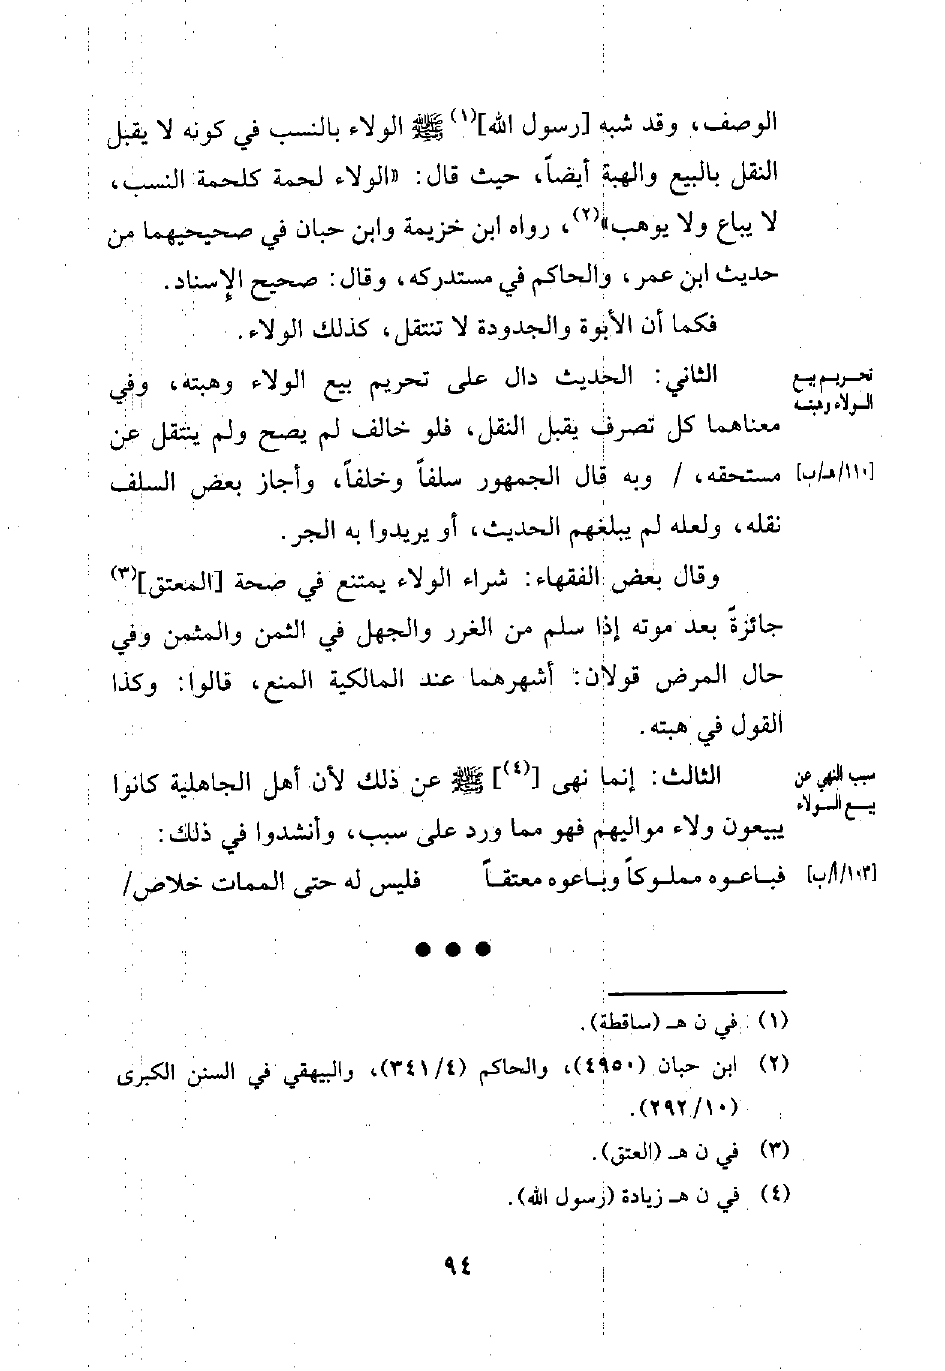 الوصف، وقد شبه [رسول الله](١) ﷺ الولاء بالنسب في كونه لا يقبل
النقل بالبيع والهبة أيضاً، حيث قال: «الولاء لحمة كلحمة النسب،
لا يباع ولا يوهب»(٢)، رواه ابن خزيمة وابن حبان في صحيحيهما من
حديث ابن عمر، والحاكم في مستدركه، وقال: صحيح الإسناد.
فكما أن الأبوة والجدودة لا تنتقل، كذلك الولاء.
تحريم بيع
الولاء وهبته
الثاني: الحديث دال على تحريم بيع الولاء وهبته، وفي
معناهما كل تصرف يقبل النقل، فلو خالف لم يصح ولم ينتقل عن
[١١٠/هـ/ب] مستحقه، / وبه قال الجمهور سلفاً وخلفاً، وأجاز بعض السلف
نقله، ولعله لم يبلغهم الحديث، أو يريدوا به الجر.
وقال بعض الفقهاء: شراء الولاء يمتنع في صحة [المعتق](٣)
جائزةً بعد موته إذا سلم من الغرر والجهل في الثمن والمثمن وفي
حال المرض قولان: أشهرهما عند المالكية المنع، قالوا: وكذا
القول في هبته.
سبب النهي عن
بيع الولاء
الثالث: إنما نهى [(٤)] ﷺ عن ذلك لأن أهل الجاهلية كانوا
يبيعون ولاء مواليهم فهو مما ورد على سبب، وأنشدوا في ذلك:
[١٠٣/أ/ب] فباعوه مملوكاً وباعوه معتقاً فليس له حتى الممات خلاص/
● ● ●
(١) في ن هـ (ساقطة).
(٢) ابن حبان (٤٩٥٠)، والحاكم (٣٤١/٤)، والبيهقي في السنن الكبرى
(٢٩٢/١٠).
(٣) في ن هـ (العتق).
(٤) في ن هـ زيادة (رسول الله).
٩٤